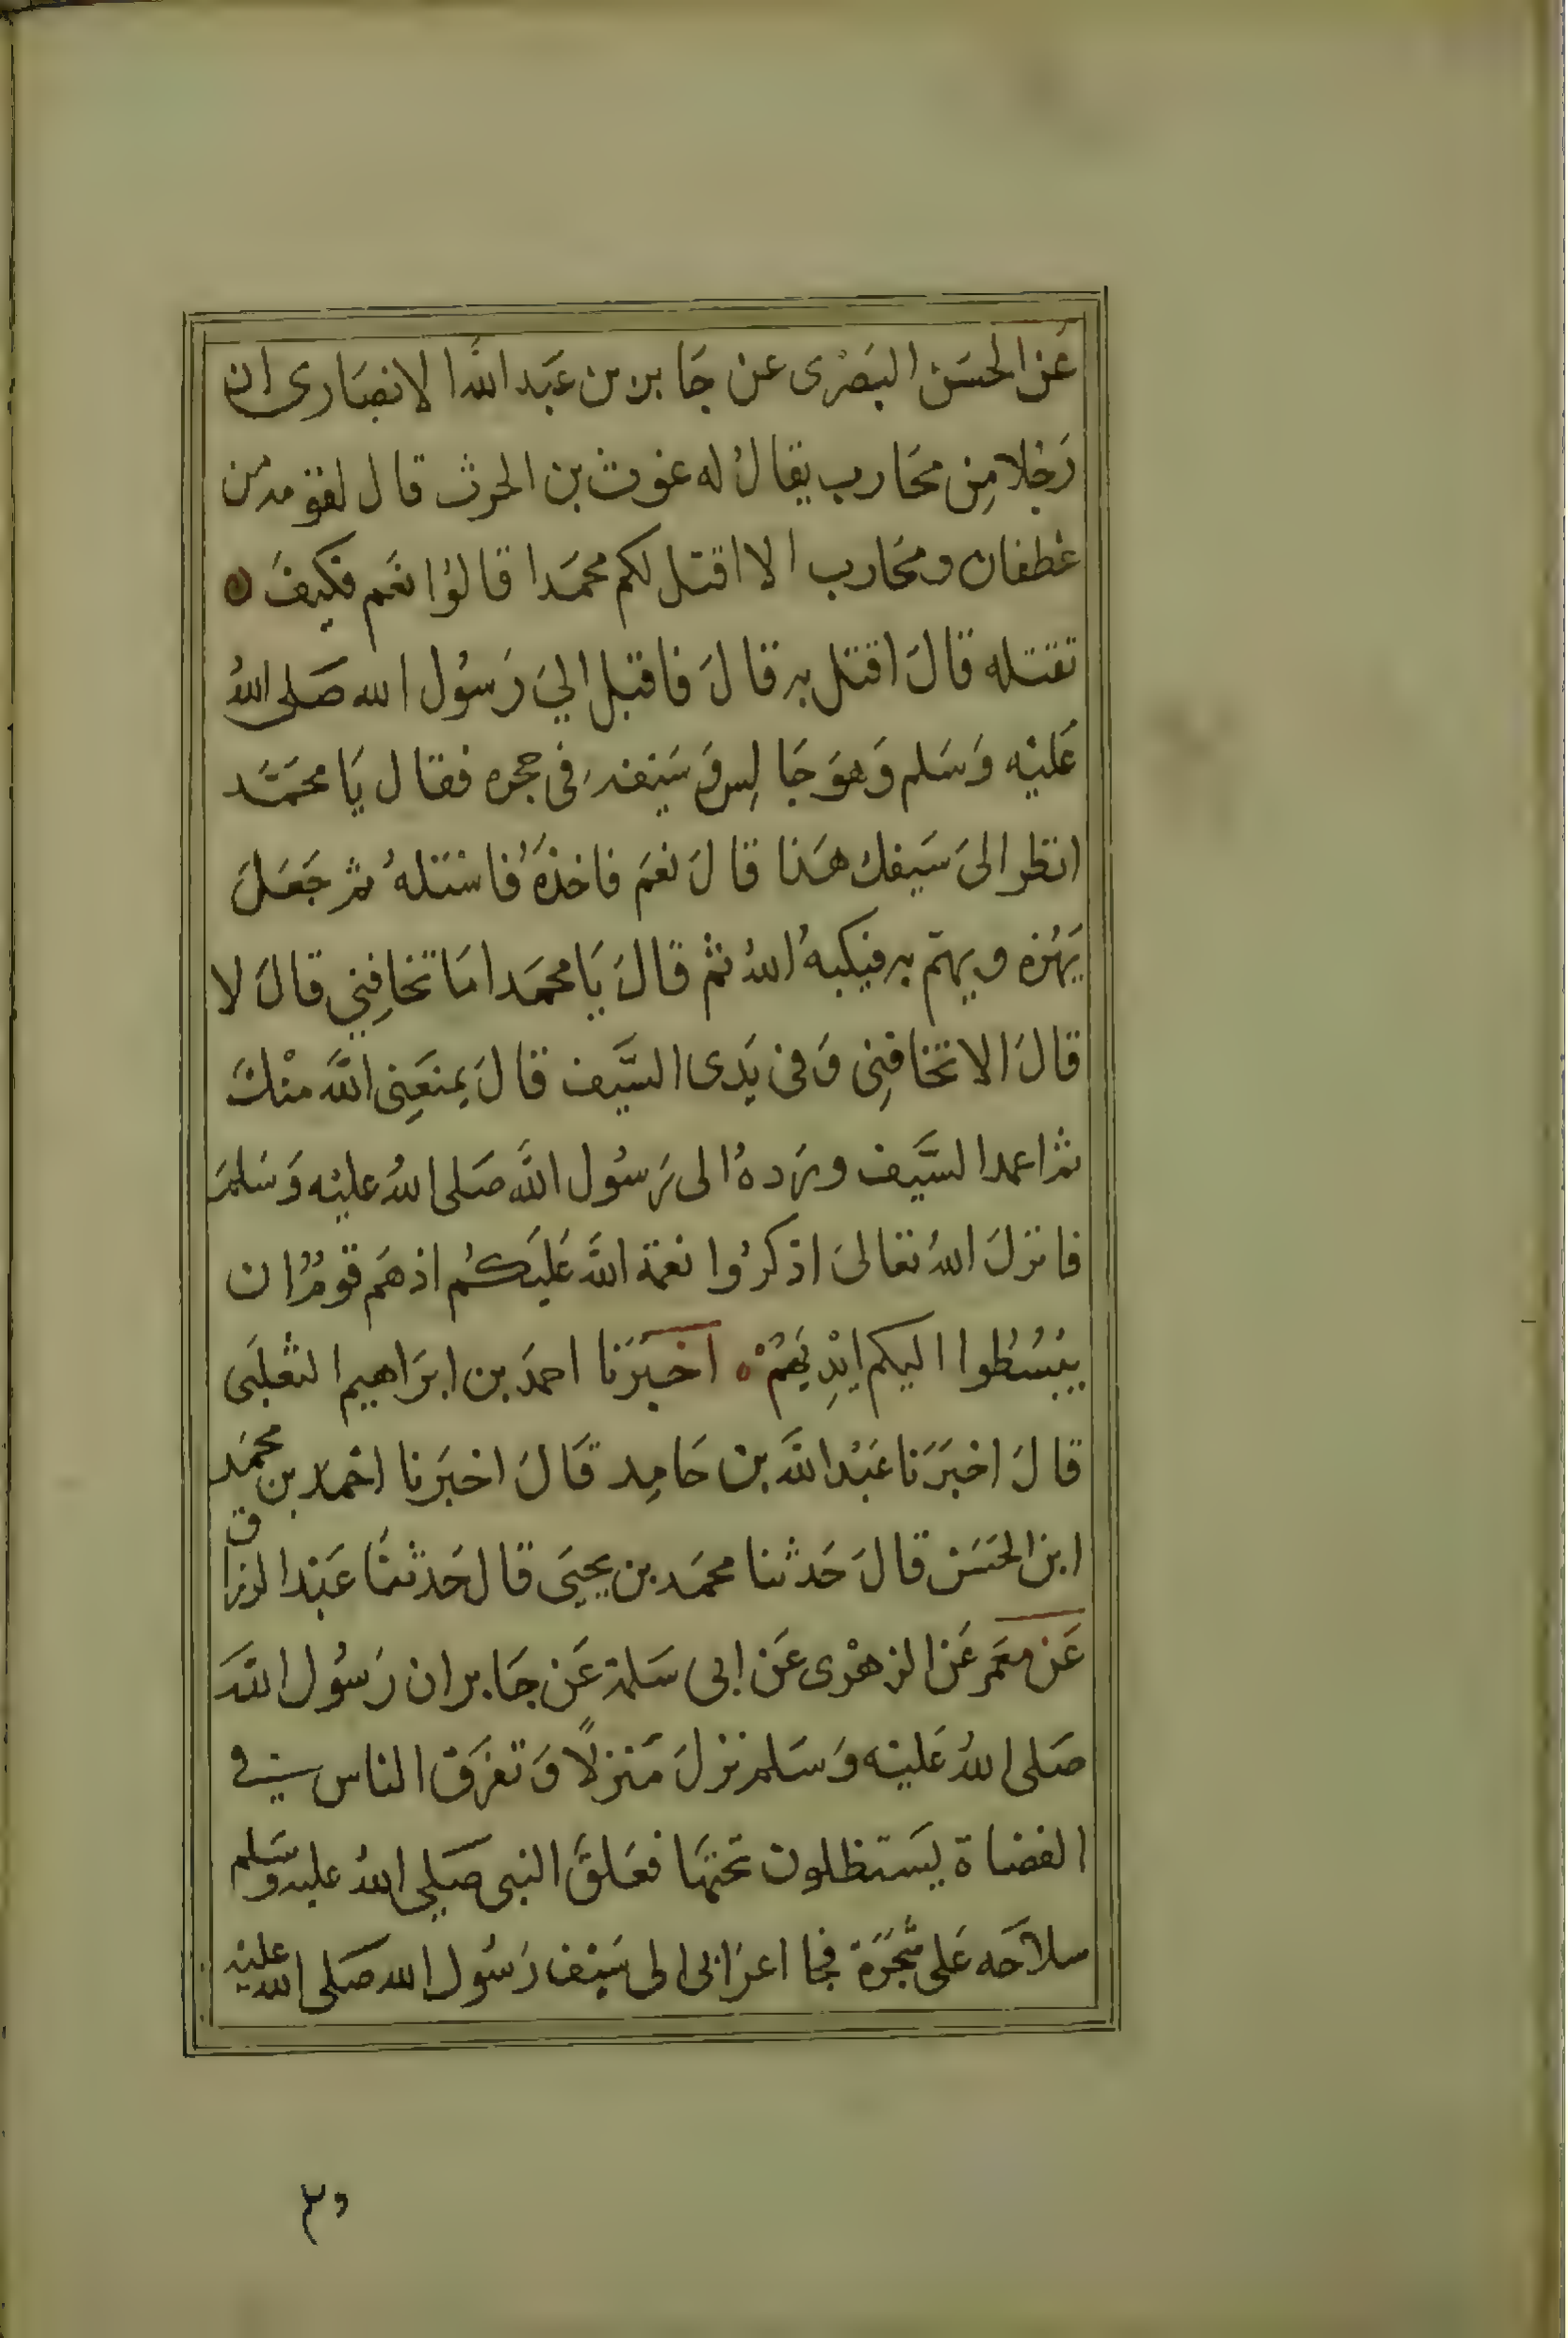 عَن الحسَن البَصْرى عن جَابر بن عَبد الله الانصَارى ان
رَجُلا مِن محَارب يقالُ له غوث بن الحرث قال لقومه من
غطفان ومحَارب الا اقتل لكم محمَدا قالوُا نعَم فكيفَ
تقتله قالَ اقتل به قالَ فاقبل اليَ رَسُول الله صَلى اللهُ
عَليْه وَسَلم وَهوَ جَالِس وَسَيفه فى حجره فقال يَا محمَّد
انظر الىَ سَيفك هَذا قالَ نعَم فاخذَهُ فاستَلهُ ثم جَعَلَ
يَهُزه ويهمّ به فيكبهُ اللهُ ثم قالَ يَا محمَد امَا تخافِني قالَ لا
قالَ الا تخافِنِى وَفى يَدى السَّيف قالَ يمنعَنِى اللَّه منْكَ
ثم اعمد السَّيف ورَدهُ الى رَسُول اللَّه صَلى اللهُ عليْه وَسَلمَ
فانزلَ اللهُ تعَالىَ اذكرُوا نعمَة اللَّه عَليَكُم اذ هَم قومٌ ان
يبْسُطُوا اليكم ايْدِيَهُمْ اخبَرَنا احمدَ بن ابرَاهيم الثعلَبَى
قالَ اخبَرَنا عَبْد اللَّه بن حَامِد قَالَ اخبَرنا احمَد بن محمَد
ابن الحسَن قالَ حَدثنا محمَد بن يحيَى قال حَدثنَا عَبْد الرزاق
عَن معمَر عَن الزهْرى عَن ابى سَلمة عَن جَابر ان رَسُول اللَّه
صَلى اللهُ عَليْه وَسَلم نزلَ مَنزلًا وَتفرَق الناس في
الغضاة يَستظلون تحتهَا فعَلقَ النبى صَلى اللهُ عليه وسَلم
سلاَحَه عَلى شجَرَة فجا اعرَابى الى سَيْف رَسُول الله صَلى الله عليْه